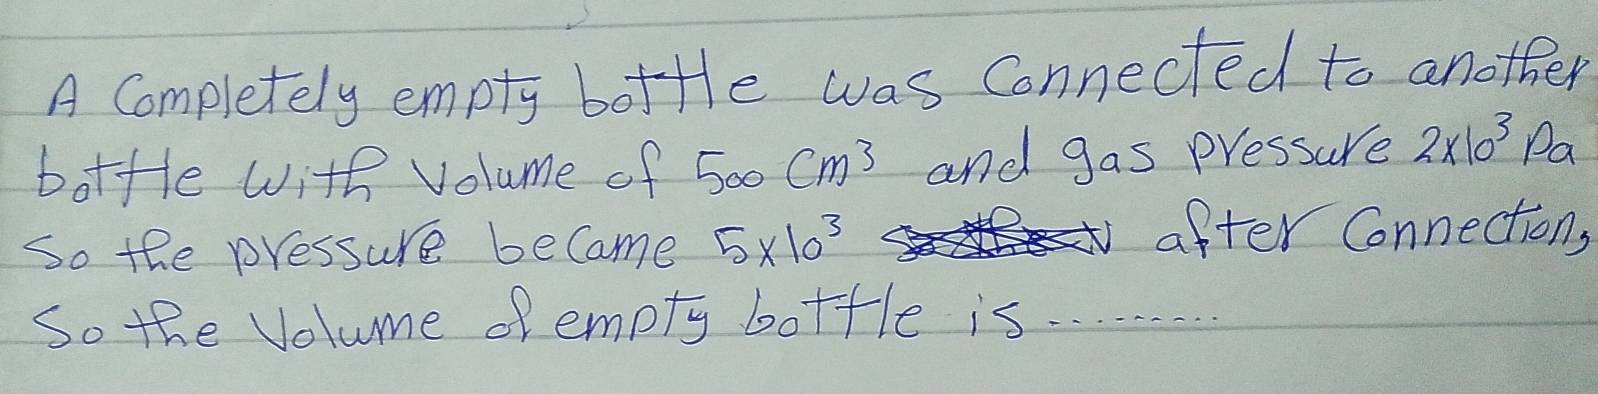 A Completely empty bottle was Connected to another
bottle with volume of 500 Cm³ and gas pressure 2x10³ Pa
So the pressure became 5x10³ after Connection,
So the Volume of empty bottle is .........